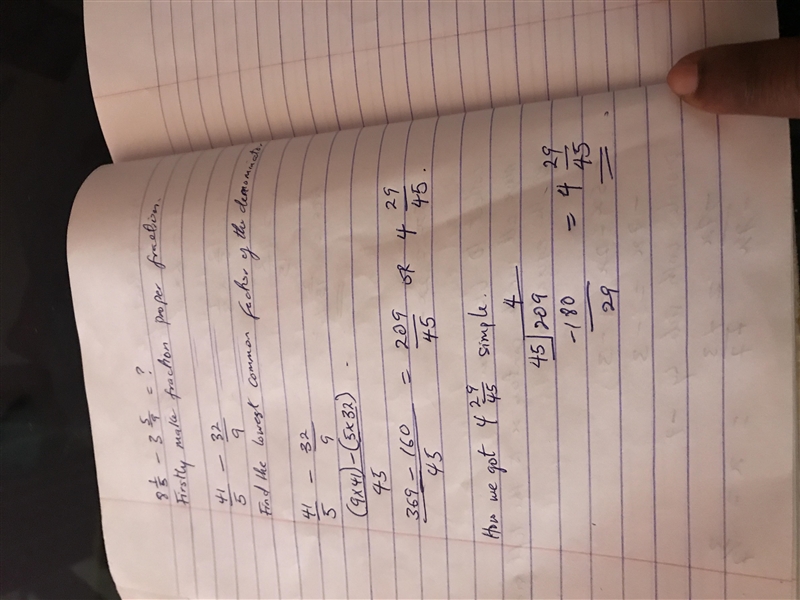 8 1/5 - 3 5/9 = ?
Firstly make fraction proper fraction.
41/5 - 32/9
Find the lowest common factor of the denominator.
41/5 - 32/9
(9x41)-(5x32)/45
369-160/45 = 209/45 or 4 29/45.
How we got 4 29/45 simple.
4
45 209 = 4 29/45
-180
29